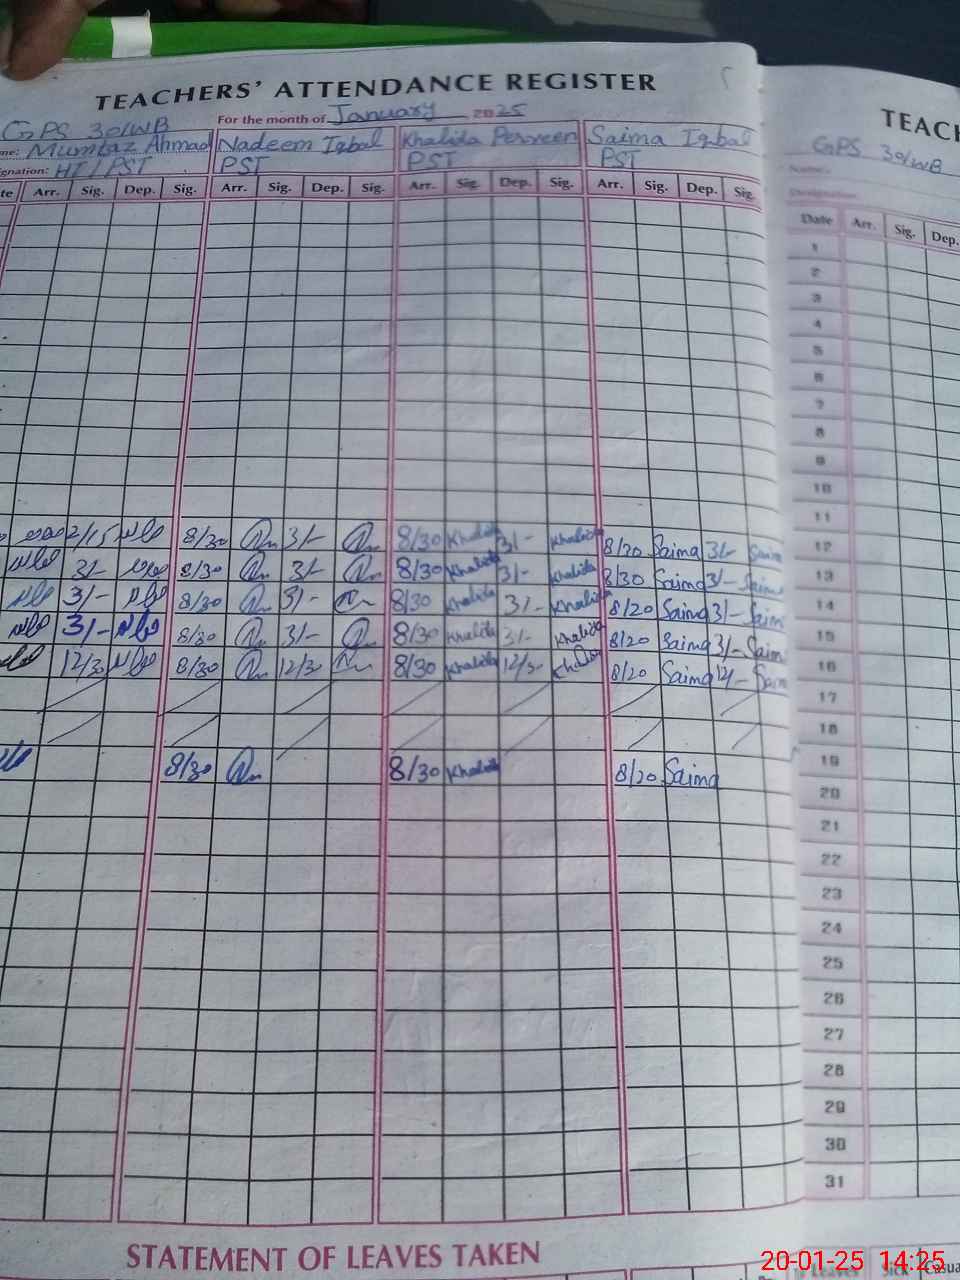 TEACHERS' ATTENDANCE REGISTER
For the month of January 2025
GPS 30/WB
me: Mumtaz Ahmad Nadeem Iqbal Khalida Perveen Saima Iqbal
ignation: HT/PST PST PST PST
te Arr. Sig. Dep. Sig. Arr. Sig. Dep. Sig. Arr. Sig. Dep. Sig. Arr. Sig. Dep. Sig.
2/15 8/30 3/- 8/30 Khalida 3/- Khalida 8/20 Saima 3/- Saima
3/- 8/30 3/- 8/30 Khalida 3/- Khalida 8/30 Saima 3/- Saima
3/- 8/30 3/- 8/30 Khalida 3/- Khalida 8/20 Saima 3/- Saim
3/- 8/30 3/- 8/30 Khalida 3/- Khalida 8/20 Saima 3/- Saim
12/30 8/30 12/3 8/30 Khalida 12/3- Khalida 8/20 Saima 12/- Saim
8/30 8/30 Khalida 8/20 Saima
STATEMENT OF LEAVES TAKEN
TEACH
GPS 30/WB
Name:
Designation:
Date Arr. Sig. Dep.
1
2
3
4
5
6
7
8
9
10
11
12
13
14
15
16
17
18
19
20
21
22
23
24
25
26
27
28
29
30
31
Leaves Sick Casua
20-01-25 14:25